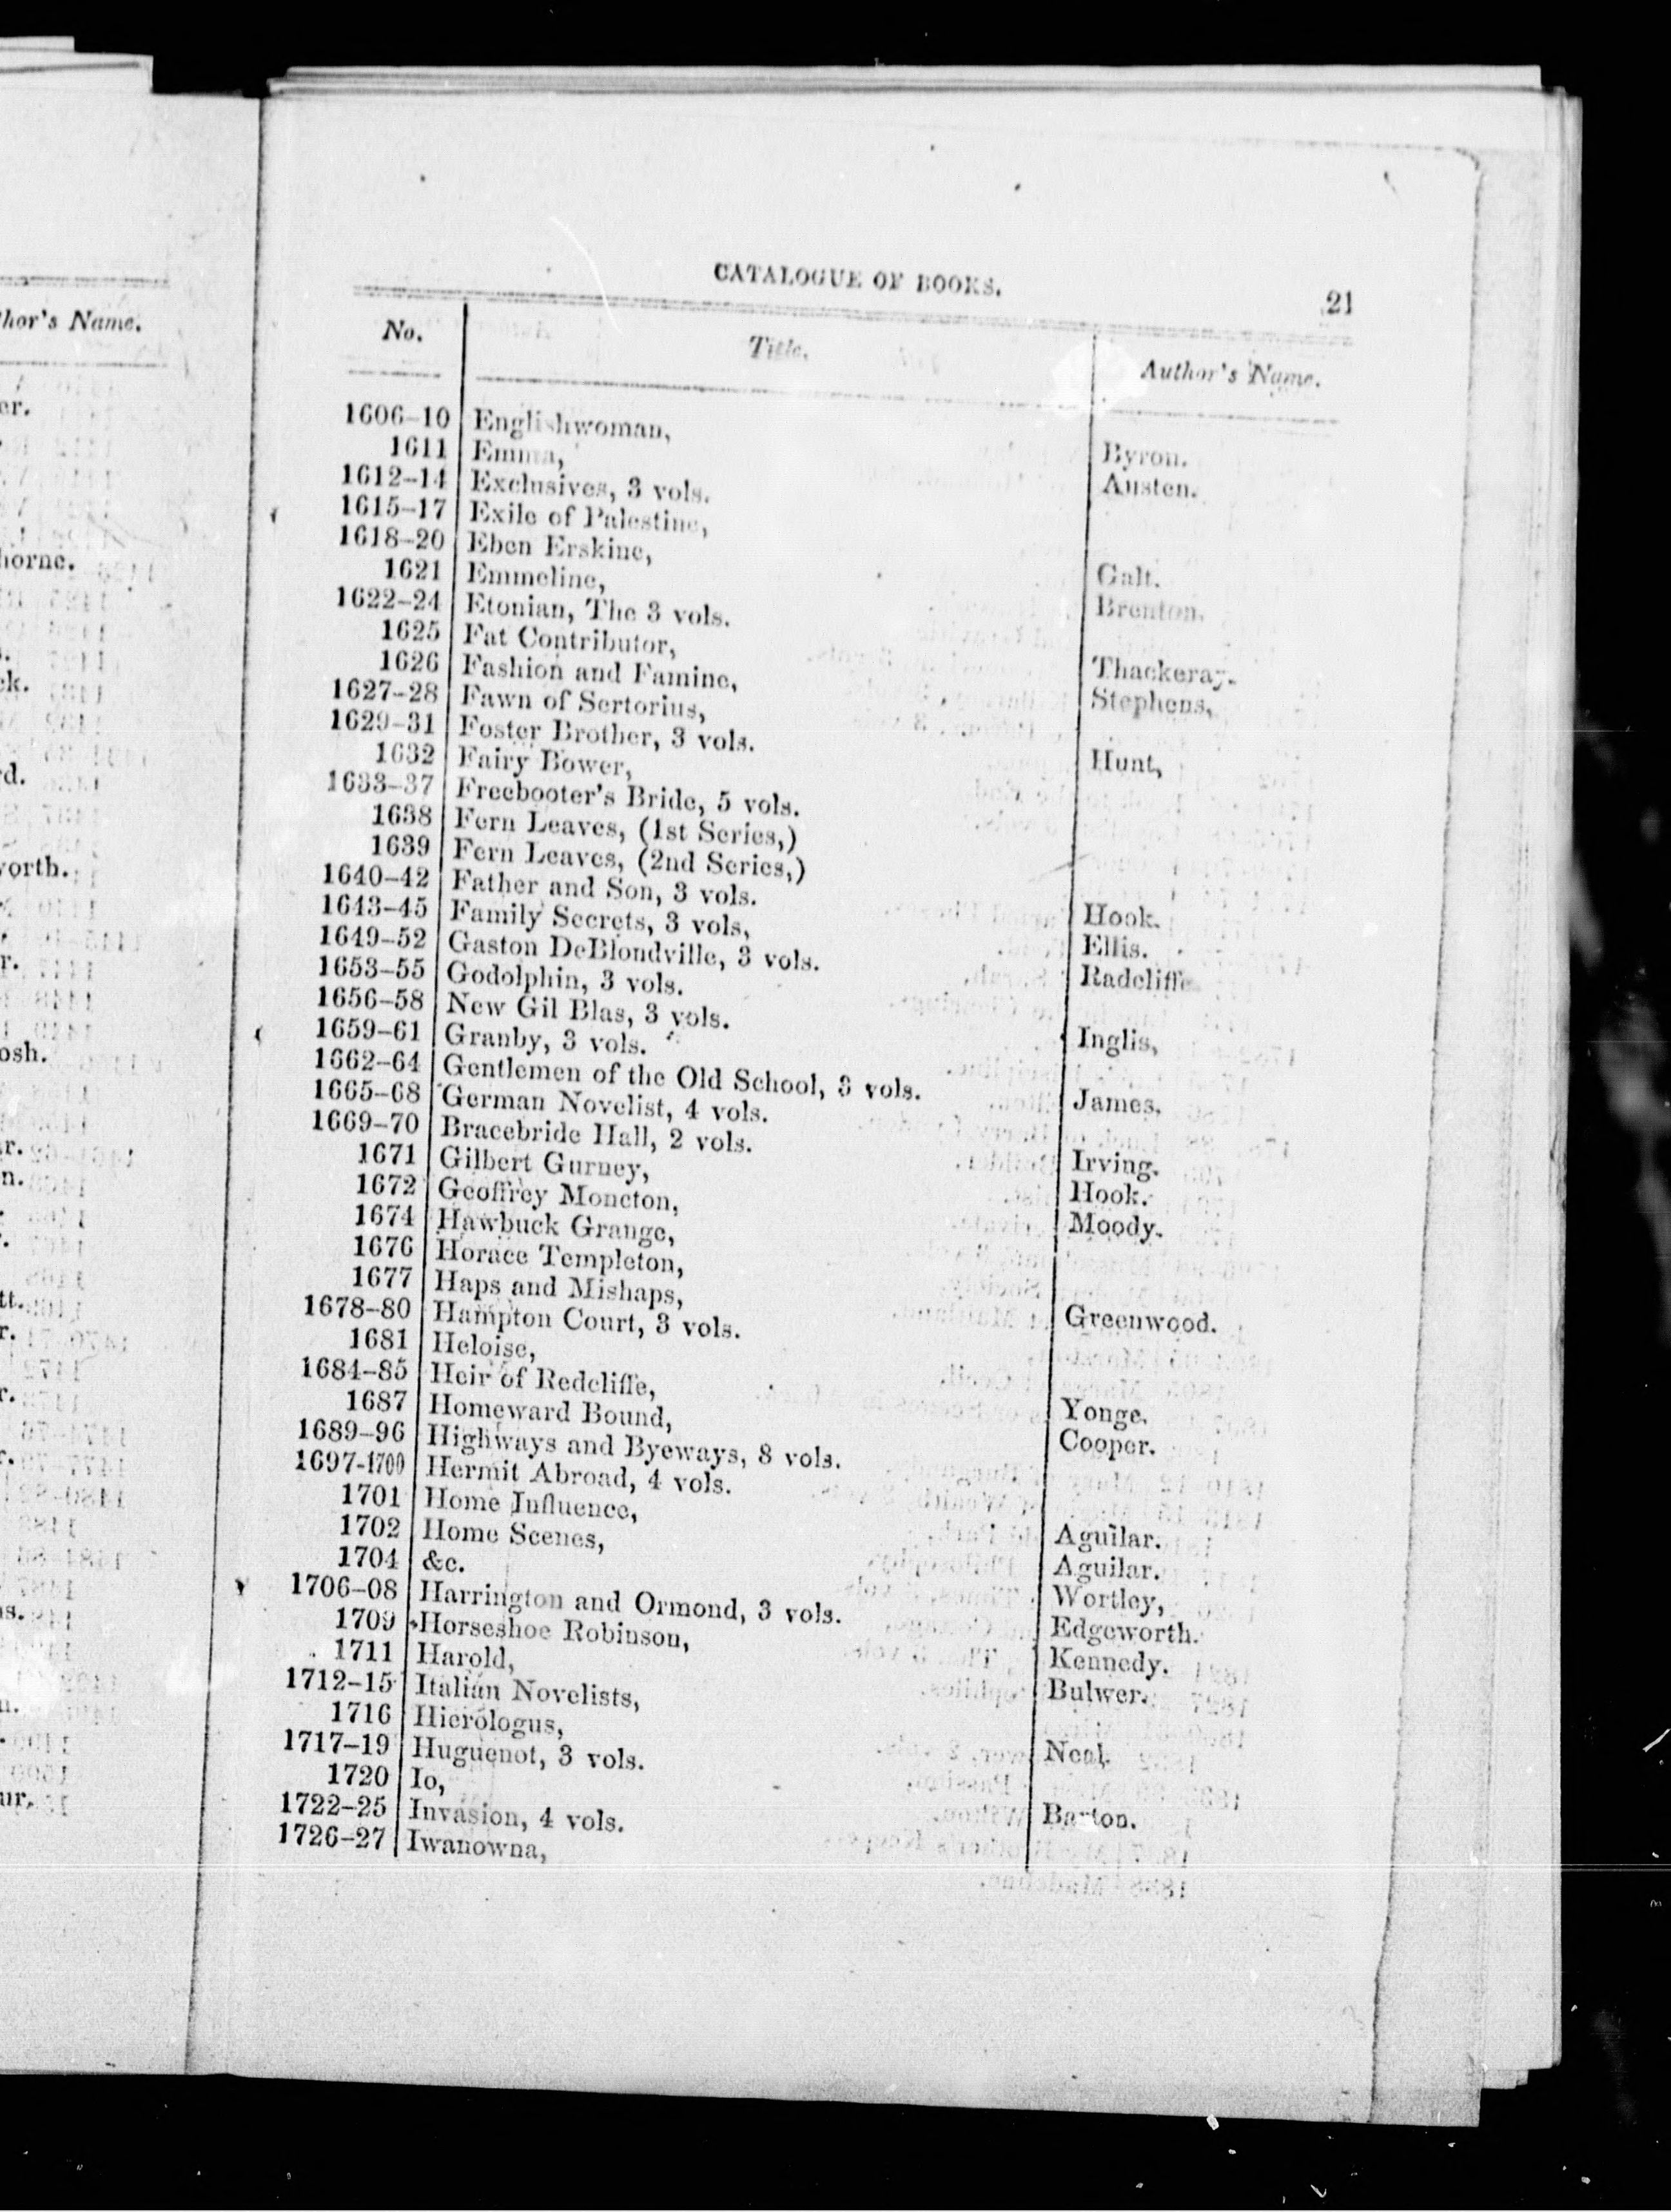 CATALOGUE OF BOOKS. 21
No. Title. Author's Name.
1606-10 Englishwoman, Byron.
1611 Emma, Austen.
1612-14 Exclusives, 3 vols.
1615-17 Exile of Palestine,
1618-20 Eben Erskine, Galt.
1621 Emmeline, Brenton.
1622-24 Etonian, The 3 vols.
1625 Fat Contributor, Thackeray.
1626 Fashion and Famine, Stephens,
1627-28 Fawn of Sertorius,
1629-31 Foster Brother, 3 vols. Hunt,
1632 Fairy Bower,
1633-37 Freebooter's Bride, 5 vols.
1638 Fern Leaves, (1st Series,)
1639 Fern Leaves, (2nd Series,)
1640-42 Father and Son, 3 vols. Hook.
1643-45 Family Secrets, 3 vols, Ellis.
1649-52 Gaston DeBlondville, 3 vols. Radcliffe
1653-55 Godolphin, 3 vols.
1656-58 New Gil Blas, 3 vols. Inglis,
1659-61 Granby, 3 vols.
1662-64 Gentlemen of the Old School, 3 vols. James.
1665-68 German Novelist, 4 vols.
1669-70 Bracebride Hall, 2 vols. Irving.
1671 Gilbert Gurney, Hook.
1672 Geoffrey Moncton, Moody.
1674 Hawbuck Grange,
1676 Horace Templeton,
1677 Haps and Mishaps, Greenwood.
1678-80 Hampton Court, 3 vols.
1681 Heloise,
1684-85 Heir of Redcliffe, Yonge.
1687 Homeward Bound, Cooper.
1689-96 Highways and Byeways, 8 vols.
1697-1700 Hermit Abroad, 4 vols.
1701 Home Influence, Aguilar.
1702 Home Scenes, Aguilar.
1704 &c. Wortley,
1706-08 Harrington and Ormond, 3 vols. Edgeworth.
1709 Horseshoe Robinson, Kennedy.
1711 Harold, Bulwer.
1712-15 Italian Novelists,
1716 Hierologus, Neal.
1717-19 Huguenot, 3 vols.
1720 Io, Barton.
1722-25 Invasion, 4 vols.
1726-27 Iwanowna,